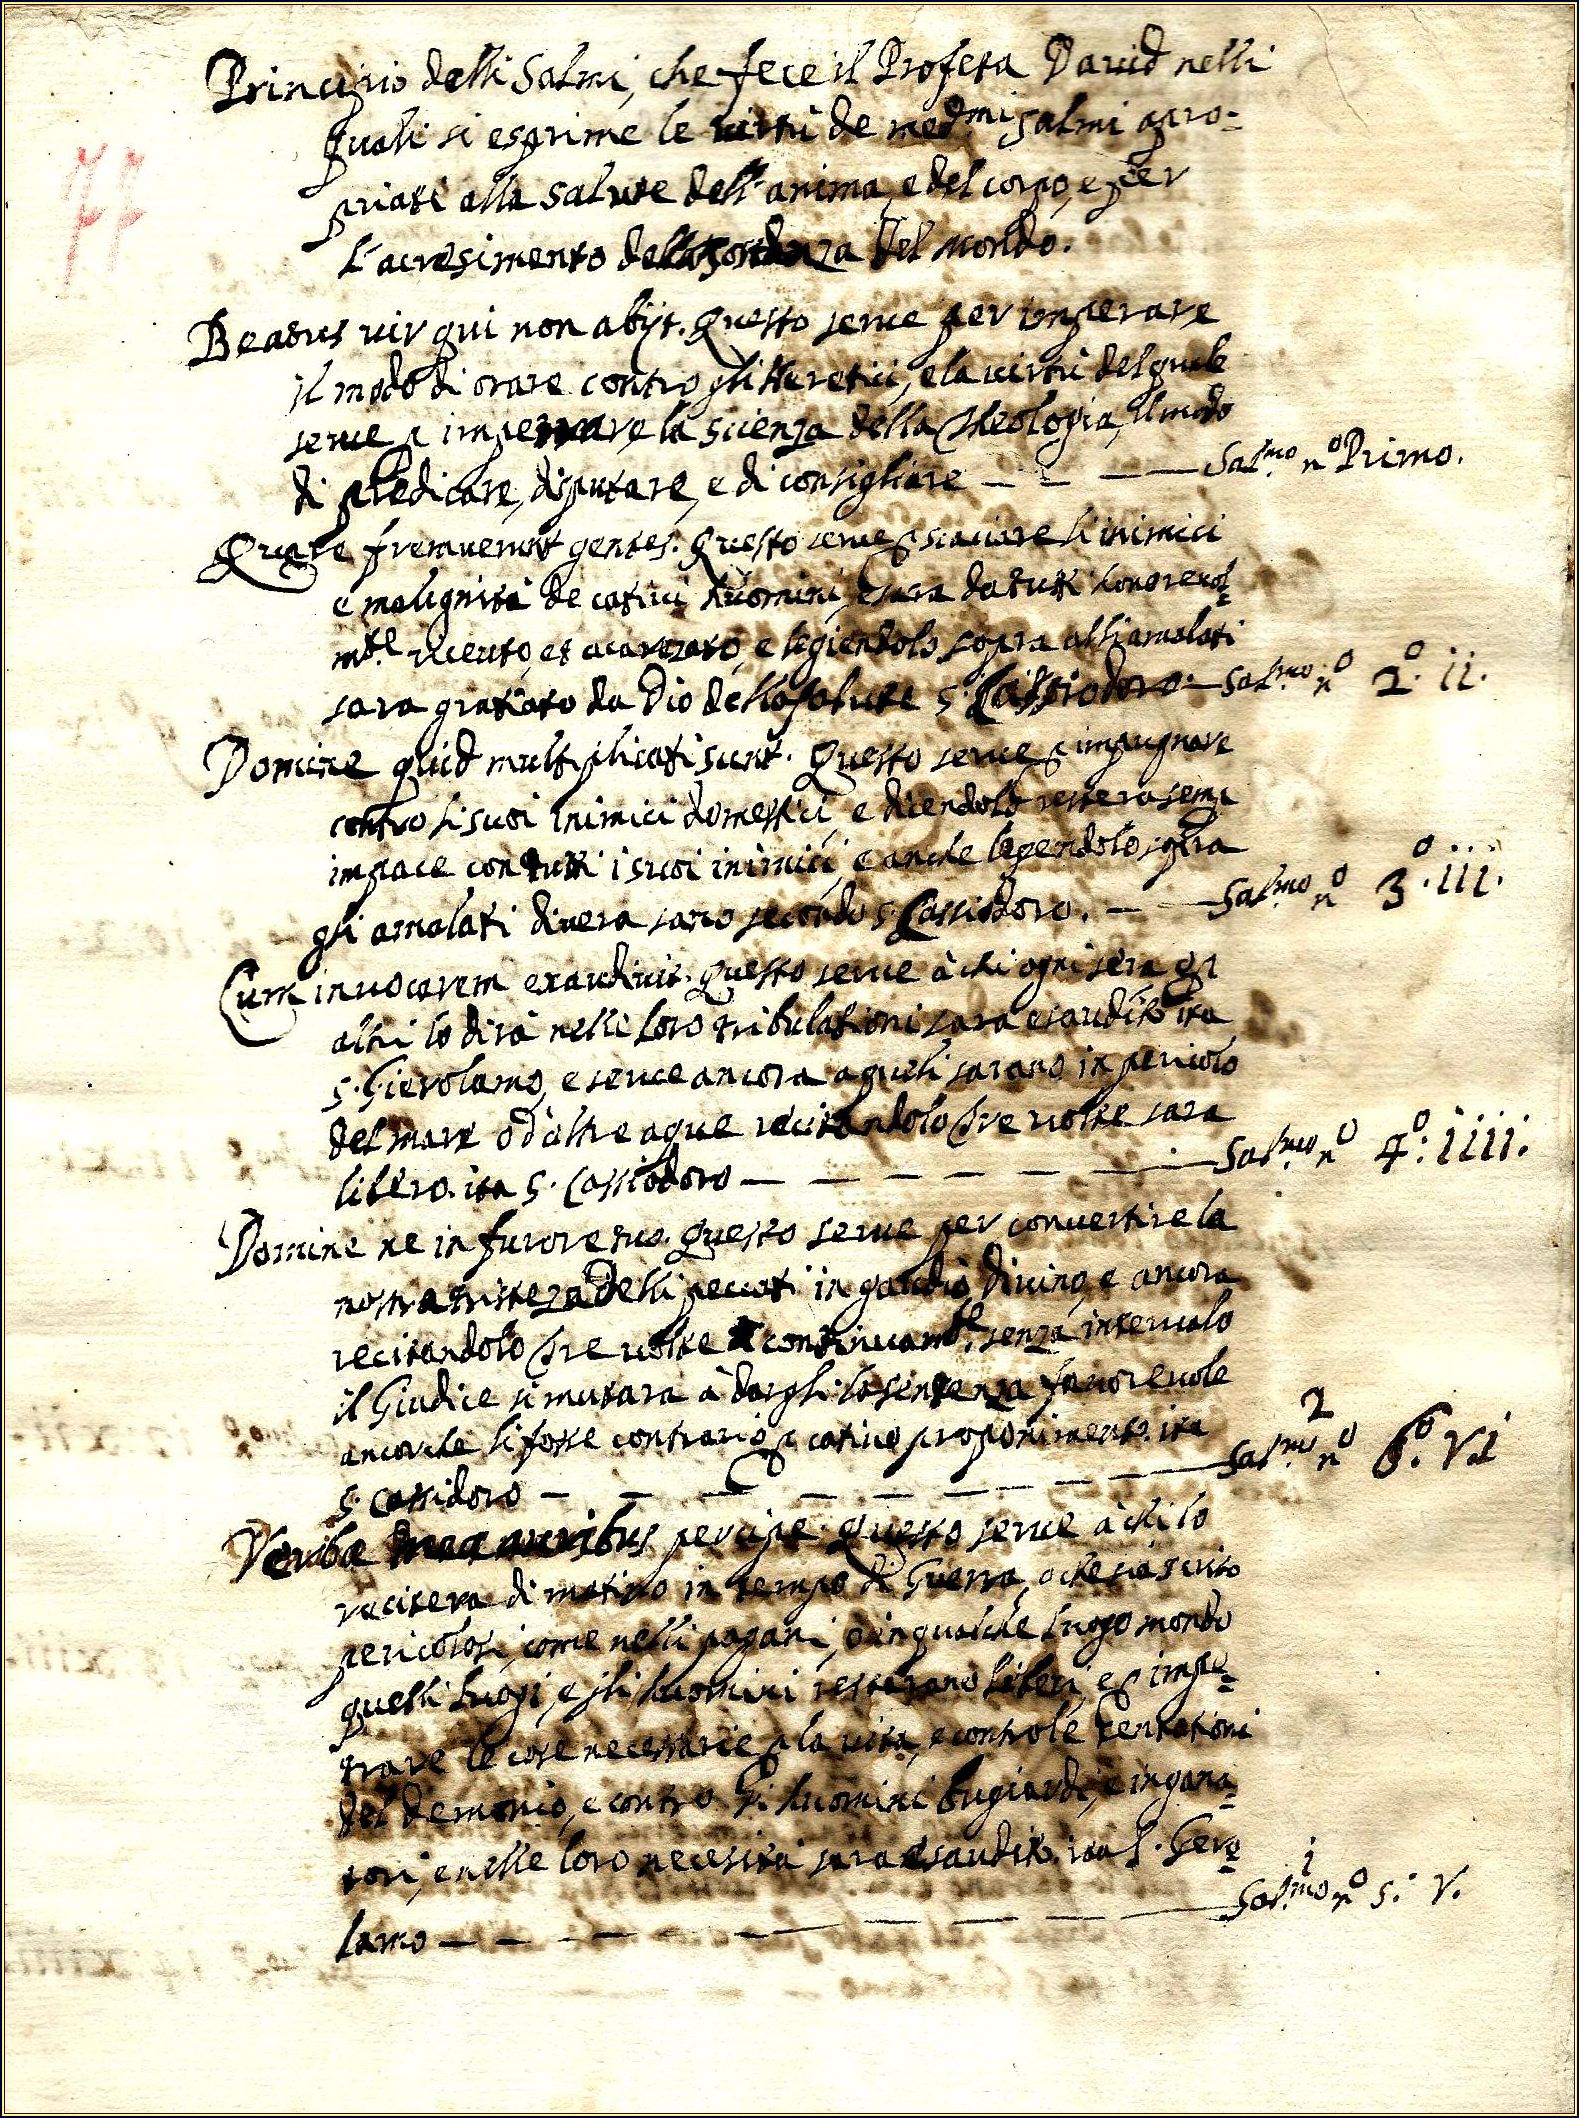 Principio delli Salmi, che fece il Profeta David nelli
quali si esprime le virtù de med.mi salmi apro=
priati alla salute dell'anima, e del corpo, e per
l'acresimento della del mondo.
77
Beatus vir qui non abijt. Questo serve per imperare
il modo di orare contro gli Heretici, e la virtù del quale
serve p la scienza della Theologia, il modo
di predicare, disputare, e di consigliare — — — — Sal.mo n.o Primo.
Quare fremuerunt gentes. Questo serve p scaciare li inimici
e malignità de cativi huomini, e sara da tutti honorevol=
m.te riceuto, et acarezato, e legiendolo sopra alli amalati
sara gratiato da Dio della salute S. Cassiodoro. — Sal.mo n.o 2.o ii.
Domine quid multiplicati sunt. Questo serve p impugnare
contro li suoi inimici domestici, e dicendolo restera semp
impace con tutti i suoi inimici, e anche legendolo sopra
gli amalati divera sano secondo S. Cassiodoro. — — Sal.mo n.o 3.o iii.
Cum invocarem exaudivit. Questo serve à chi ogni sera p
altri lo dirà nelli loro tribulationi sara esaudito ita
S. Gierolamo, e serve ancora a queli sarano in pericolo
del mare ò d'altre aque recitandolo tre volte sara
libero. ita S. Cassiodoro — — — — — — — Sal.mo n.o 4.o iiii.
Domine ne in furore tuo. Questo serve per convertire la
nostra tristeza delli peccati in gaudio divino, e ancora
recitandolo tre volte continuam.te senza intervalo
il Giudice si mutara à dargli la sentenza favorevole
ancorche li fosse contrario p cativo proponimento. ita
S. Cassidoro — — — — — — — — — Sal.mo n.o 6.o VI
2
Verba mea auribus percipe. Questo serve à chi lo
recitera di matino in tempo di Guerra, o che sia scrito
pericolosi, come nelli pagani, ò in qualche luogo mondo
quelli luogi, e gli huomini resterano liberi, e p impe=
trare le cose necessarie p la vita, e contro le tentationi
del demonio, e contro gli huomini bugiardi, e ingana=
tori, e nelle loro necesità sara esaudito. ita S. Gero=
lamo — — — — — — — — — Sal.mo n.o 5. V.
i